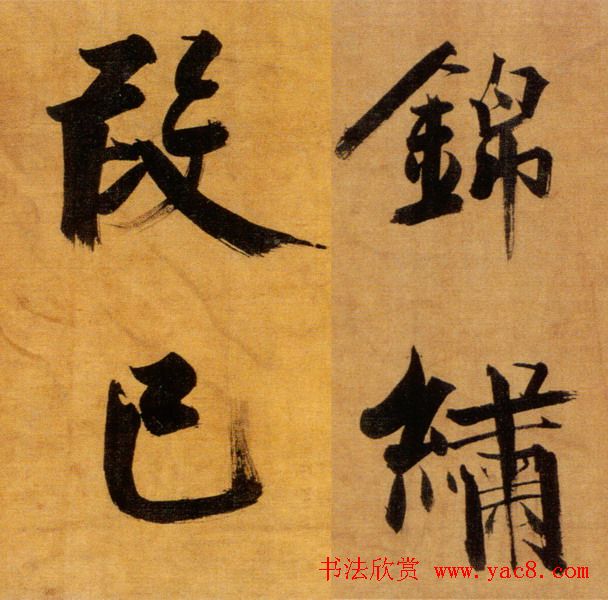 錦繡
段已
书法欣赏 www.yac8.com